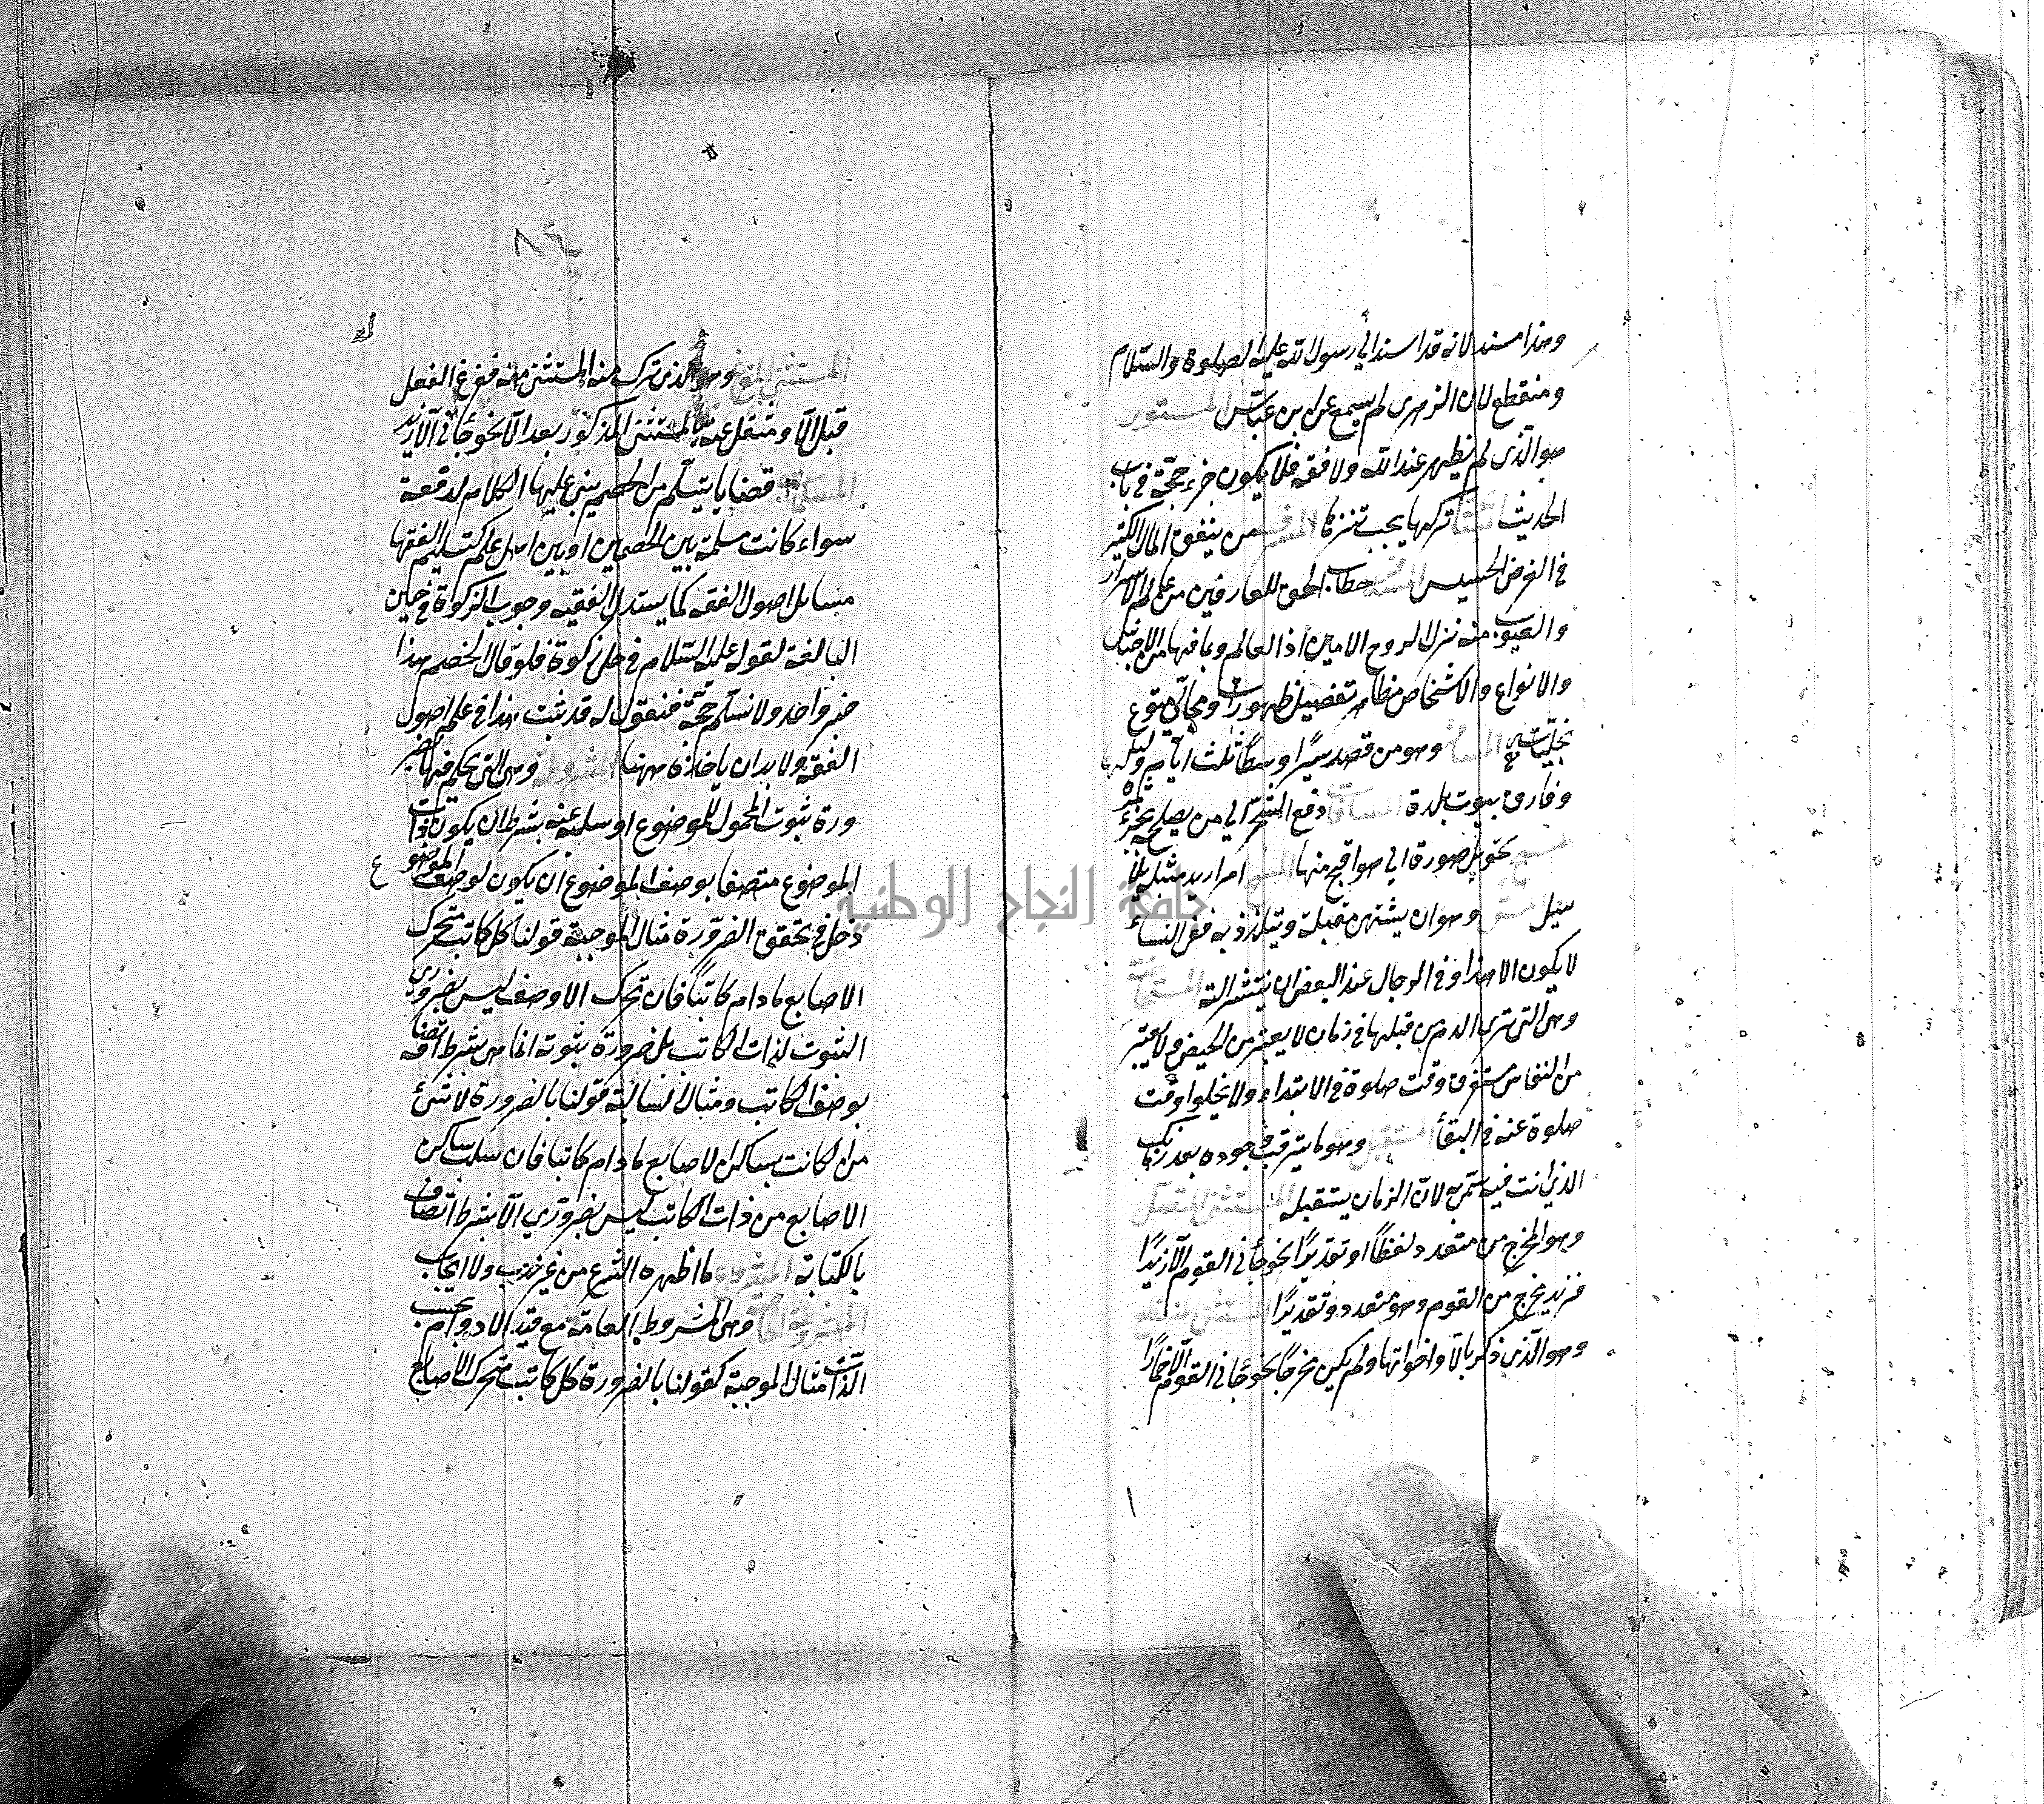 وهذا مسند لانه قد اسند الي رسول الله عليه الصلوة والسّلام
ومنقطع لان الزهرى لم يسمع عن ابن عباس المستور
هو الذى لم يظهر عند الله ولا فقه فلا يكون خبره حجّة في باب
الحديث تركها يجب تنزها المسرف من ينفق المال الكثير
في الغرض الخسيس خطاب الحق للعارفين من عالم الاسرار
والغيوب منه نزل الروح الامين اذ العالم وما فيها من الاجناس
والانواع والاشخاص مظاهر تفصيل ظهورات ومجالي تنوع
تجلياته المسافر وهو من قصد سيرًا وسطًا ثلث ايام ولياليها
وفارق بيوت بلدة المساقاة دفع الشجر الي من يصلحه بجزء ثمره
مسخ تحويل صورة الي هو اقبح منها المسح امرار يد مبتلة بلا
سيل وهو ان يشتهى بقلبه ويتلذذ به ففي النساء
لا يكون الا هذا وفي الرجال عند البعض ان ينتشر الته المستحاضة
وهى التى ترى الدم من قبلها فى زمان لا يعتبر من الحيض و لا يعتبر
من النفاس مستغرق وقت صلوة في الابتداء ولا يخلوا وقت
صلوة عنه في البقأ المستقبل وهو ما يترقب وجوده بعد زمانك
الذى انت فيه سمّى به لانّ الزمان يستقبله المستثنى المتصل
وهو المخرج من متعدد لفظًا او تقديرًا نحو جأنى القوم الّا زيدًا
فزيد مخرج من القوم وهو متعدد وتقديرًا المستثنى
وهو الّذى ذكر بالّا واخواتها ولم يكن مخرجًا نحو جأنى القوم الّا حمارًا
٨٤
المستثنى المفرغ وهو الذى ترك منه المستثنى منه ففرغ الفعل
قبل الّا وشغل عنه بالمستثنى المذكور بعد الّا نحو ما جأنى الّا زيد
المسلمات قضايا يتسلّم من الخصم يبنى عليها الكلام لدفعه
سواء كانت مسلمة بين الخصمين او بين اهل علم كتسليم الفقها
مسائل اصول الفقه كما يستدل الفقيه وجوب الزكوة في حلى
البالغة لقوله عليه السّلام في حلى زكوة فلو قال الخصم هذا
خبر واحد ولا نسلّم حجّة فنقول له قد ثبت هذا في علم اصول
الفقه ولا بد ان ياخذه ههنا المشروطة وهى التى يحكم فيها بضر
ورة ثبوت المحمول للموضوع او سلبه عنه بشرط ان يكون ذات
الموضوع متصفا بوصف الموضوع ان يكون لوصف الموضوع
دخل في تحقق الضّرورة مثال الموجبة قولنا كل كاتب متحرك
الاصابع ما دام كاتبًا فان تحرك الا وصف ليس بضروري
الثبوت لذات الكاتب بل ضرورة ثبوته انما هى بشرط اتصافه
بوصف الكاتب ومثال السالبة قولنا بالضرورة لا شئ
من الكاتب بساكن الاصابع ما دام كاتبا فان سلب ساكن
الاصابع من ذات الكاتب ليس بضروري الّا بشرط اتصاف
بالكتابة المشروع ما اظهره الشرع من غير ندب ولا ايجاب
المشروطة وهى المشروط العامة مع قيد اللا دوام بحسب
الذات مثال الموجبة كقولنا بالضرورة كل كاتب متحرك الاصابع
جامعة النجاح الوطنية